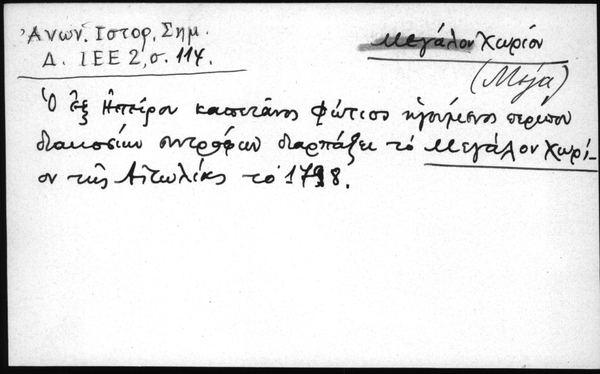 Ἀνων. Ἱστορ. Σημ.
Δ. ΙΕΕ 2, σ. 114.
Μεγάλον Χωρίον
(Μέγα)
Ὁ ἐξ Ἠπείρου καπετάνος Φώτιος ἡγούμενος περίπου
διακοσίων συντρόφων διαρπάζει τὸ Μεγάλον Χωρί-
ον τῆς Αἰτωλίας τὸ 1798.